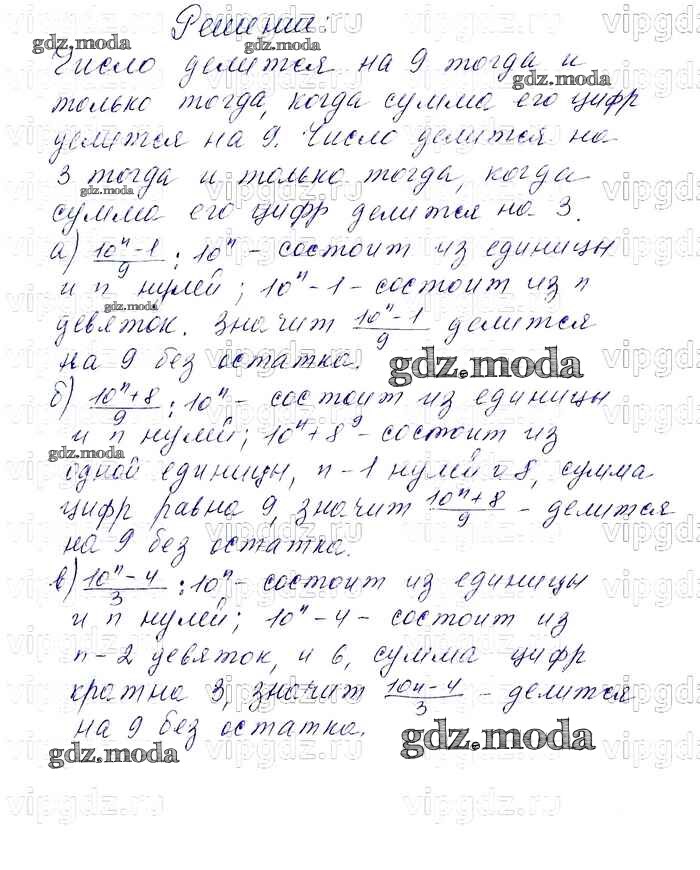 Решение:
Число делится на 9 тогда и
только тогда, когда сумма его цифр
делится на 9. Число делится на
3 тогда и только тогда, когда
сумма его цифр делится на 3.
а) (10ⁿ-1)/9 ; 10ⁿ - состоит из единицы
и n нулей; 10ⁿ-1 - состоит из n
девяток. Значит (10ⁿ-1)/9 делится
на 9 без остатка.
gdz.moda
б) (10ⁿ+8)/9 ; 10ⁿ - состоит из единицы
и n нулей; 10ⁿ+8 - состоит из
одной единицы, n-1 нулей и 8, сумма
цифр равна 9, значит (10ⁿ+8)/9 - делится
на 9 без остатка.
в) (10ⁿ-4)/3 ; 10ⁿ - состоит из единицы
и n нулей; 10ⁿ-4 - состоит из
n-2 девяток, и 6, сумма цифр
кратна 3, значит (10n-4)/3 - делится
на 9 без остатка.
gdz.moda
gdz.moda
vipgdz.ru